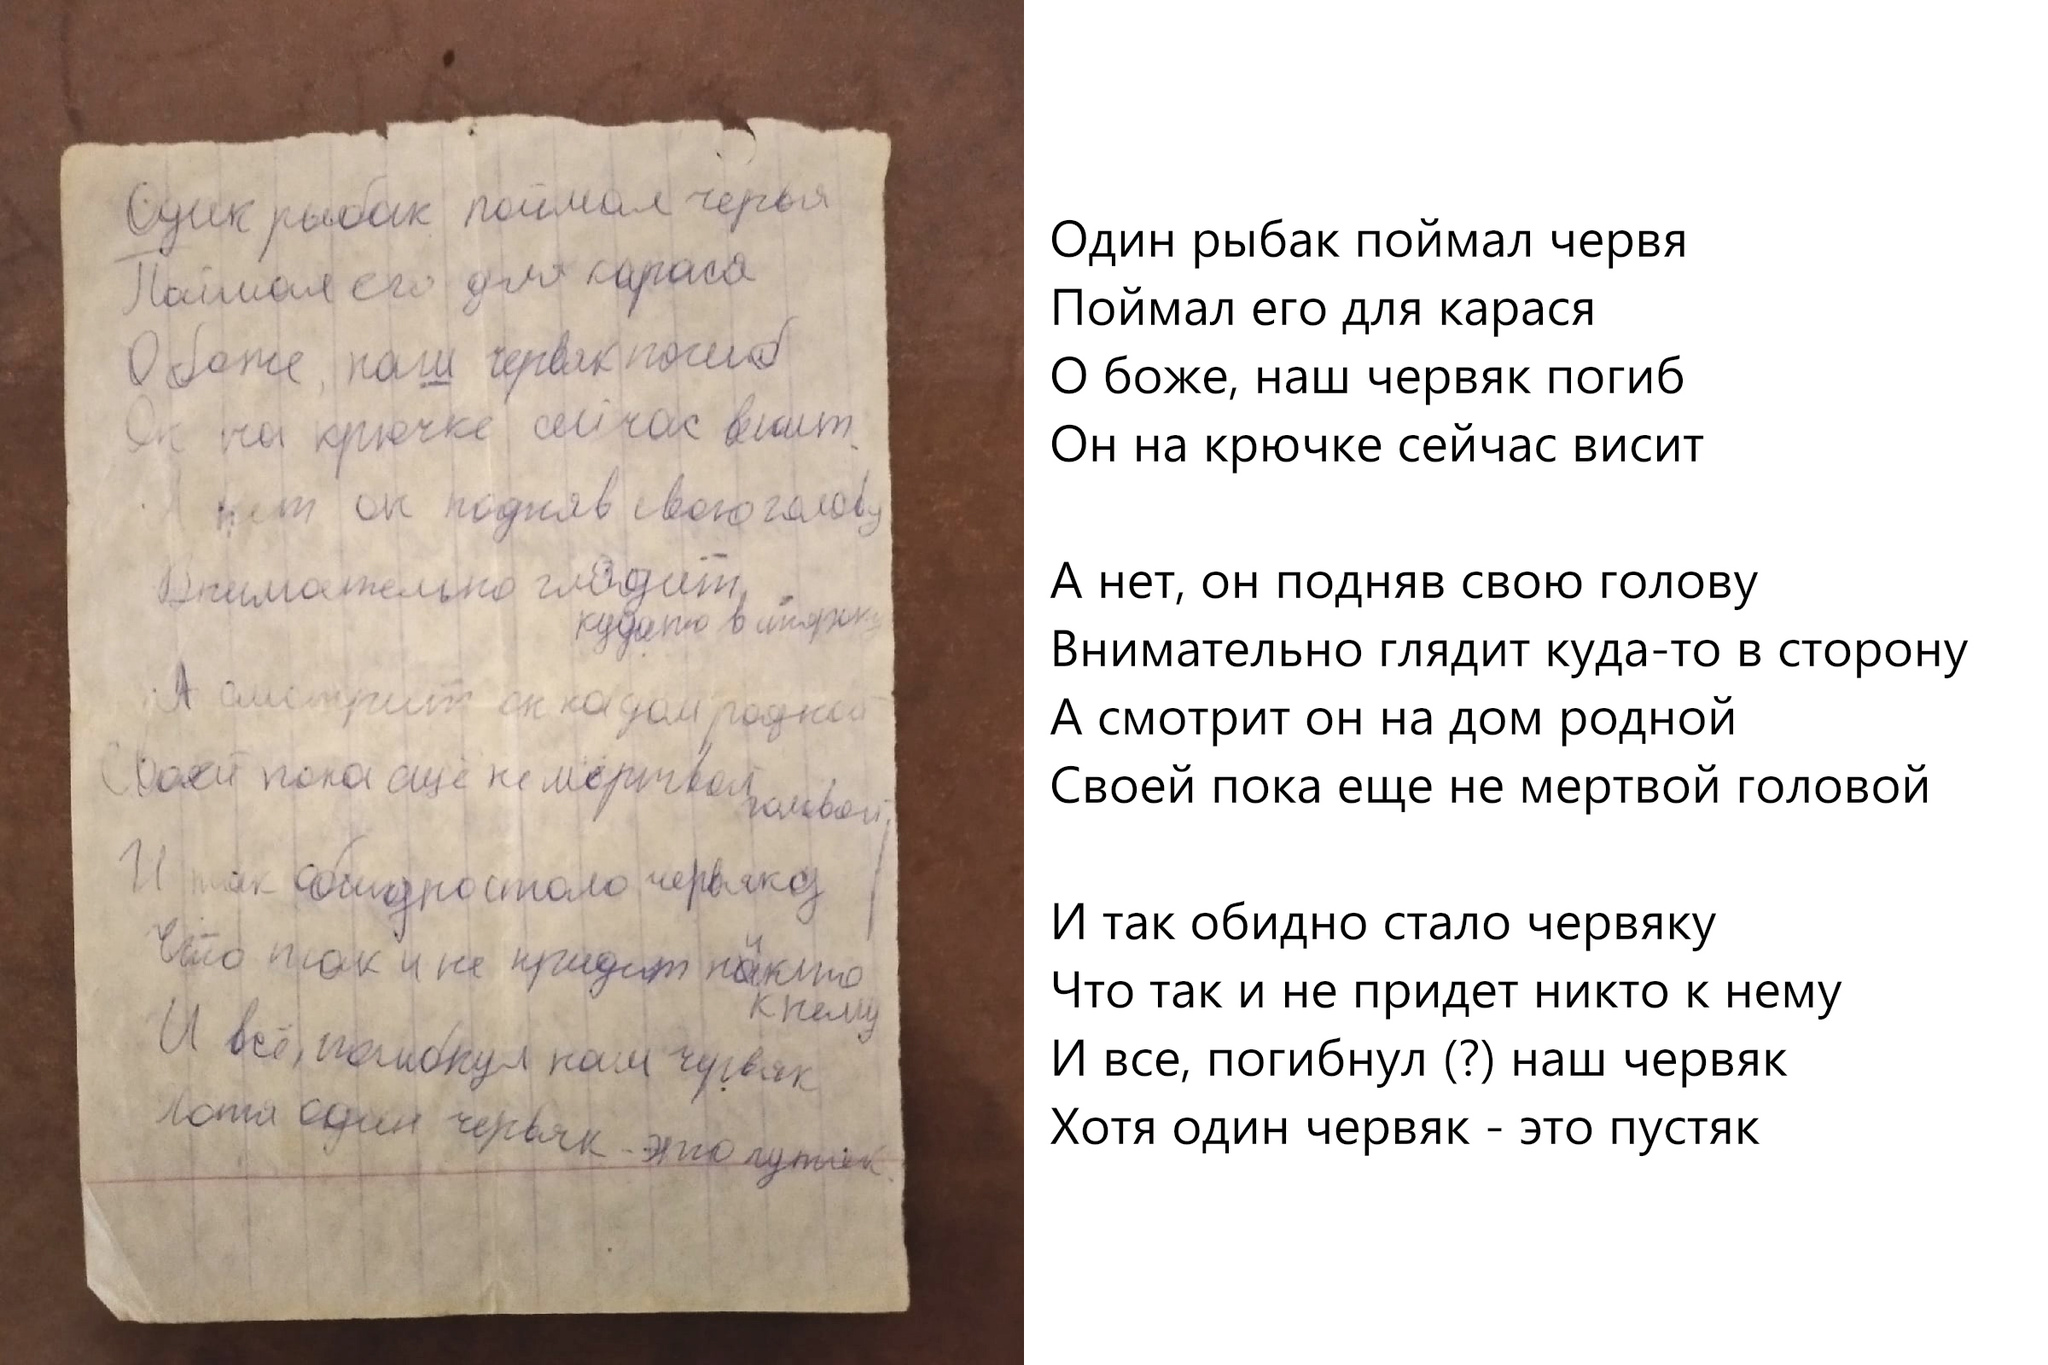 Один рыбак поймал червя
Поймал его для карася
О боже, наш червяк погиб
Он на крючке сейчас висит.
А нет он подняв свою голову
Внимательно глядит,
куда то в сторону
А смотрит он на дом родной
Своей пока ещё не мёртвой
головой.
И так обидно стало червяку
Что так и не придет никто
к нему
И всё, погибнул наш червяк
Хотя один червяк - это пустяк.
Один рыбак поймал червя
Поймал его для карася
О боже, наш червяк погиб
Он на крючке сейчас висит
А нет, он подняв свою голову
Внимательно глядит куда-то в сторону
А смотрит он на дом родной
Своей пока еще не мертвой головой
И так обидно стало червяку
Что так и не придет никто к нему
И все, погибнул (?) наш червяк
Хотя один червяк - это пустяк